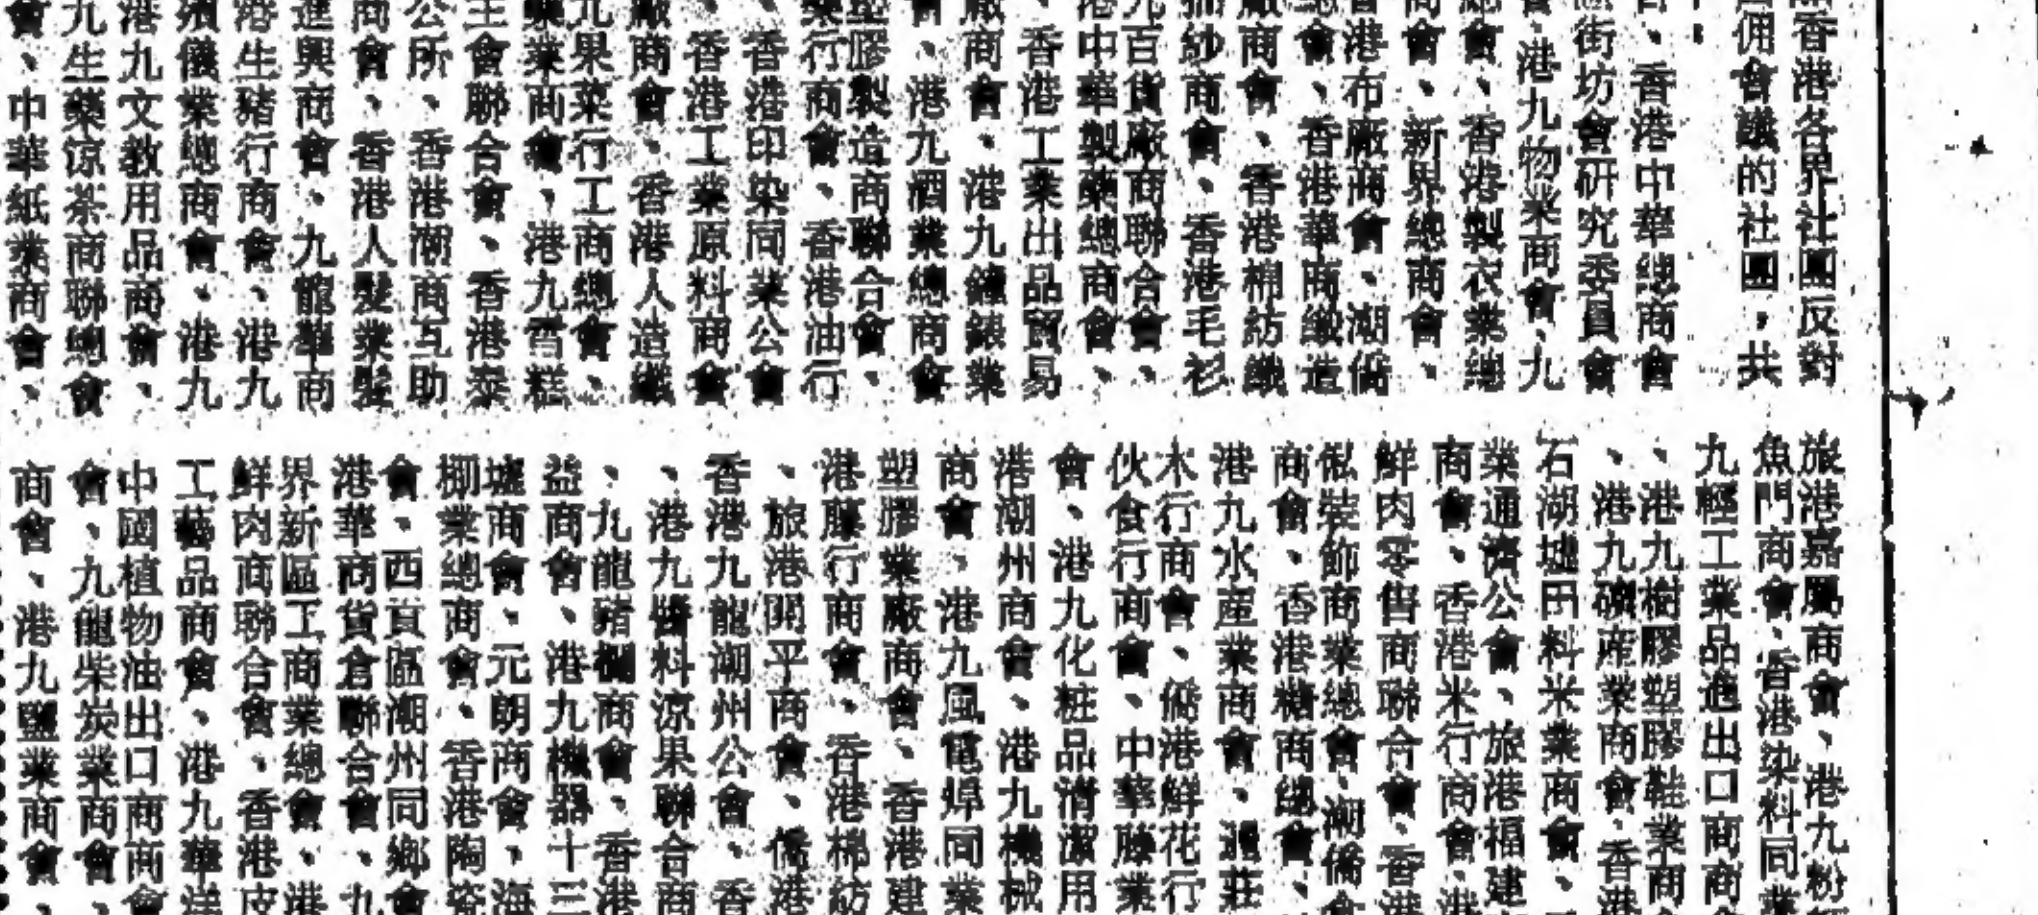 香港各界社團反對
佣會議的社團，共
、香港中華總商會
街坊會研究委員會
、港九物業商會、九
總會、香港製衣業總
商會、新界總商會、
香港布廠商會、潮僑
總會、香港華商織造
廠商會、香港棉紡織
紗商會、香港毛衫
九百貨廠商聯合會、
港中華製藥總商會、
、香港工業出品貿易
廠商會、港九鐘錶業
會、港九酒業總商會
塑膠製造商聯合會、
藥行商會、香港油行
、香港印染同業公會
、香港工業原料商會
廠商會、香港人造纖
九果菜行工商總會、
藥業商會、港九雪糕
主會聯合會、香港泰
公所、香港潮商互助
商會、香港人髮業髮
進興商會、九龍華商
港生豬行商會、港九
殯儀業總商會、港九
港九文教用品商會、
九生藥涼茶商聯總會
會、中華紙業商會、
旅港嘉屬商會、港九粉
魚門商會、香港染料同業
九輕工業品進出口商商
、港九樹膠塑膠鞋業商
、港九礦產業商會、香港
石湖墟田料米業商會、
業通濟公會、旅港福建
商會、香港米行商會、港
鮮肉零售商聯合會、香港
俬裝飾商業總會、潮僑食
商會、香港糖商總會、
港九水產業商會、通莊
木行商會、僑港鮮花行
伙食行商會、中華籐業
會、港九化粧品清潔用
港潮州商會、港九機械
商會、港九風電焊同業
塑膠業廠商會、香港建
港籐行商會、香港棉紡
、旅港開平商會、僑港
香港九龍潮州公會、香
、港九醬料涼果聯合商
、九龍豬欄商會、香港
益商會、港九機器十三
墟商會、元朗商會、海
棚業總商會、香港陶瓷
會、西貢區潮州同鄉會
港華商貨倉聯合會、九
界新區工商業總會、港
鮮肉商聯合會、香港皮
工藝品商會、港九華洋
中國植物油出口商商會
會、九龍柴炭業商會、
商會、港九鹽業商會、